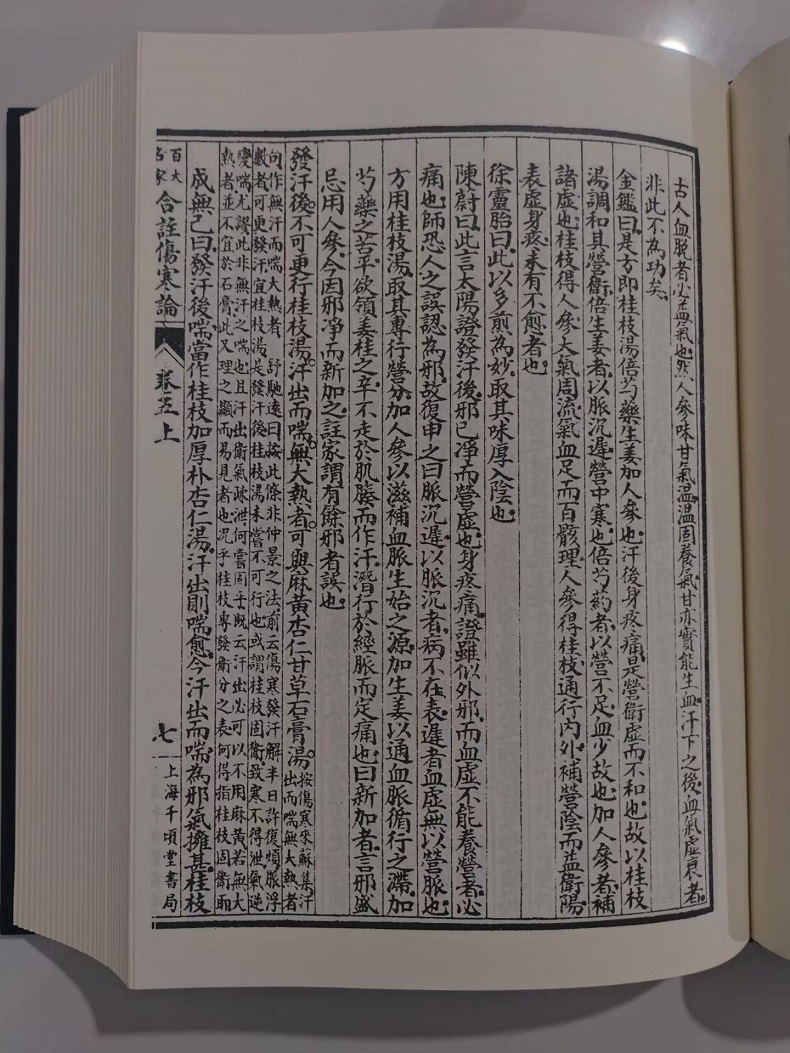 古人血脫者必益氣也然人參味甘氣溫溫固養氣甘亦實能生血汗下之後血氣虛衰者
非此不為功矣
金鑑曰是方即桂枝湯倍芍藥生姜加人參也汗後身疼痛是營衛虛而不和也故以桂枝
湯調和其營衛倍生姜者以脈沉遲營中寒也倍芍葯者以營不足血少故也加人參者補
諸虛也桂枝得人參大氣周流氣血足而百骸理人參得桂枝通行內外補營陰而益衛陽
表虛身疼未有不愈者也
徐靈胎曰此以多煎為妙取其味厚入陰也
陳蔚曰此言太陽證發汗後邪已凈而營虛也身疼痛證雖似外邪而血虛不能養營者必
痛也師恐人之誤認為邪故復申之曰脈沉遲以脈沉者病不在表遲者血虛無以營脈也
方用桂枝湯取其專行營分加人參以滋補血脈生始之源加生姜以通血脈循行之滯加
芍藥之苦平欲領姜桂之辛不走於肌腠而作汗潛行於經脈而定痛也曰新加者言邪盛
忌用人參今因邪凈而新加之註家謂有餘邪者誤也
發汗後不可更行桂枝湯汗出而喘無大熱者可與麻黃杏仁甘草石膏湯
按傷寒來蘇集汗
出而喘無大熱者
句作無汗而喘大熱者 舒馳遠曰按此條非仲景之法前云傷寒發汗解半日許復煩脈浮
數者可更發汗宜桂枝湯是發汗後桂枝湯未嘗不可行也或謂桂枝固衛致寒不得泄氣逆
變喘尤謬此非無汗之喘也且汗出衛氣疎泄何嘗固乎既云汗出必可以不用麻黃若無大
熱者並不宜於石膏此又理之顯而易見者也况乎桂枝專發衛分之表何得指桂枝固衛耶
成無己曰發汗後喘當作桂枝加厚朴杏仁湯汗出則喘愈今汗出而喘為邪氣擁甚桂枝
百大名家合註傷寒論
卷五上
七
上海千頃堂書局